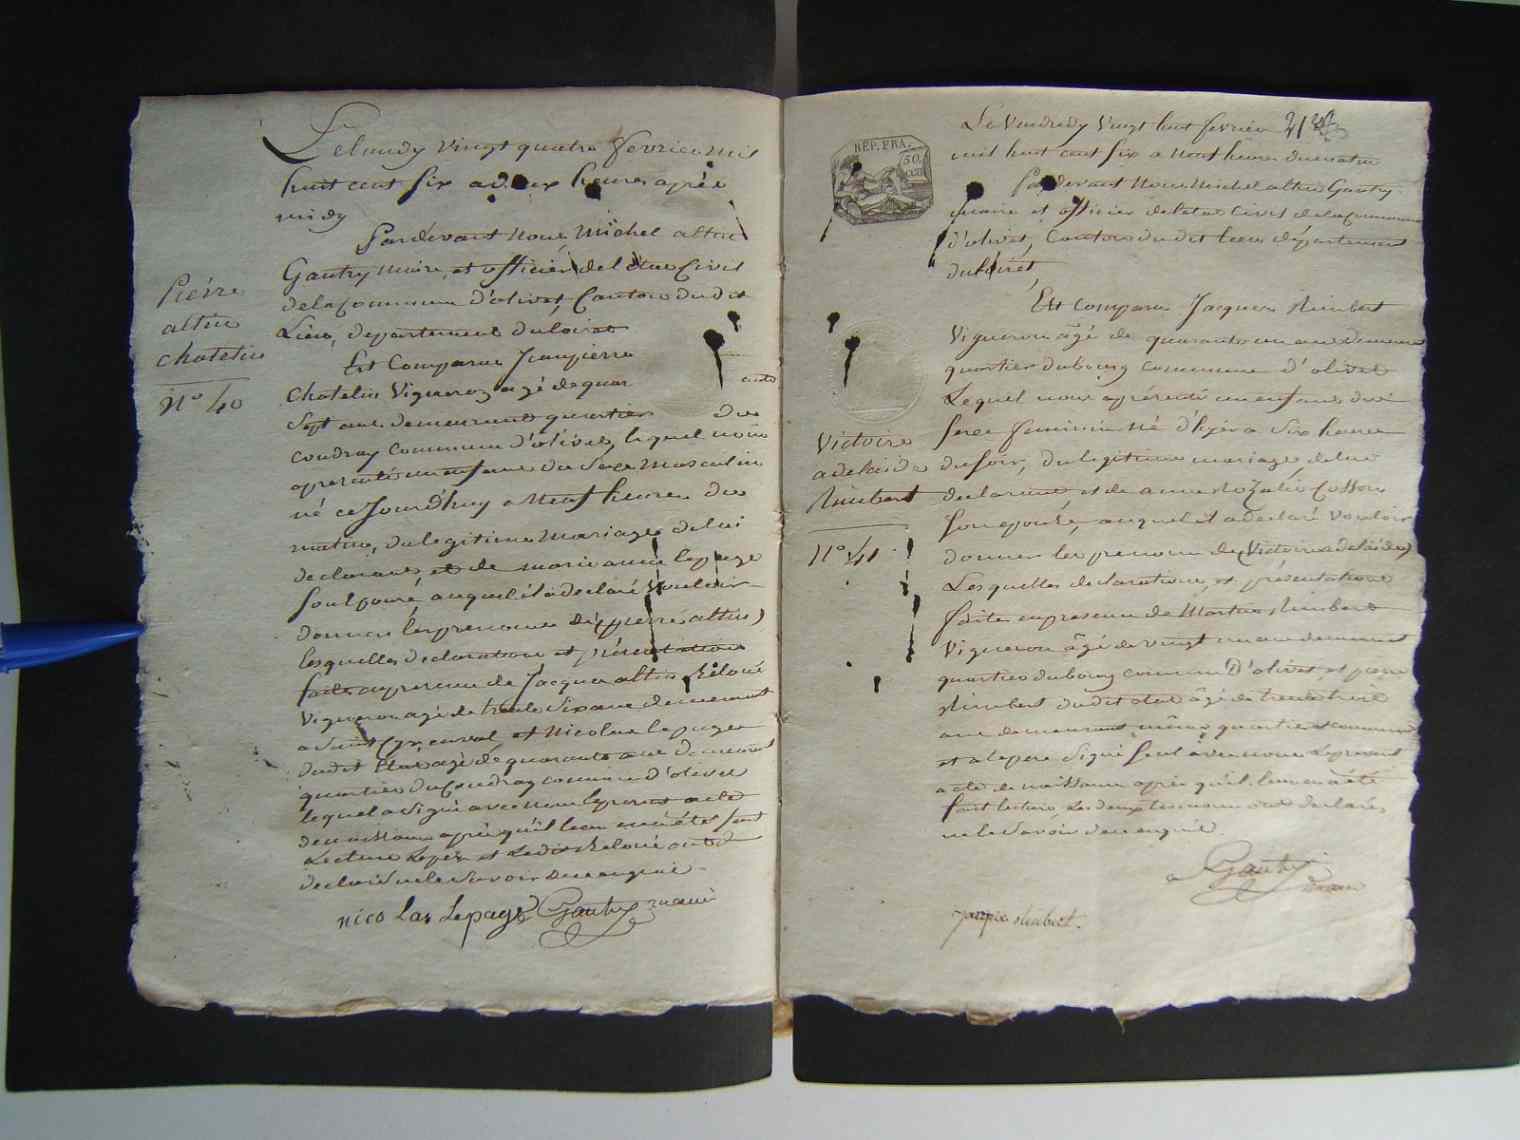 Le lundy vingt quatre fevrier mil
huit cent six a deux heures après
midy
Pardevant Nous Michel altin
Gautry Maire, et officier de l'état Civil
de la Commune d'olivet, Canton du dit
Lieu, departement du loiret
Pierre
altin
chatelin
N° 40
Est Comparu Jeanpierre
Chatelin Vigneron agé de quar
ante
Sept ans demeurant quartier du
coudray commune d'olivet, lequel nous
apresenté un enfant du Sexe Masculin
né ce Jourd'huy a Neuf heures du
matin, du legitime Mariage de lui
declarant et de marie anne lepage
son Epouse, auquel il a declaré Vouloir
donner les prenoms de (pierre altin)
lesquelles declaration et présentation
faite en presence de Jacques altin
Vigneron agé de trente Six ans demeurant
a Saint Cyr en val et Nicolas lepage
dudit Etat agé de quarante ans demeurant
quartier du Coudray commune d'olivet
lequel a Signé avec nous le present acte
de naissance après qu'il leur en a été fait
Lecture Le père et Ledit ont
declaré ne le Savoir de ce enquis
nicolas Lepage Gautry maire
Le Vendredy Vingt huit fevrier
mil huit cent six a Neuf heures du matin
REP. FRA.
50
CEN
Pardevant Nous Michel altin Gautry
maire et officier de l'etat Civil de la Commune
d'olivet, Canton du dit lieu département
du Loiret,
Est Comparu Jacques Rimbert
Vigneron âgé de quarante un ans demeurant
quartier du bourg commune d'olivet
Lequel nous a présenté un enfant du
Victoire
adelaide
Rimbert
N° 41
Sexe feminin Né d'hyer a Six heures
du soir, du legitime mariage de lui
declarant et de anne Rozalie Cosson
son epouse, auquel il a declaré Vouloir
donner les prenoms de (Victoire adelaide)
Lesquelles declarations et présentation
faite en presence de Martin Rimbert
Vigneron âgé de vingt un ans demeurant
quartier du bourg commune D'olivet, et
Rimbert dudit etat âgé de trente
ans demeurant même quartier et commune
et a le pere Signé Seul avec nous Le present
acte de naissance après qu'il leur en a été
fait lecture, Les deux temoins ont declaré
ne le Savoir de ce enquis
Gautry
maire